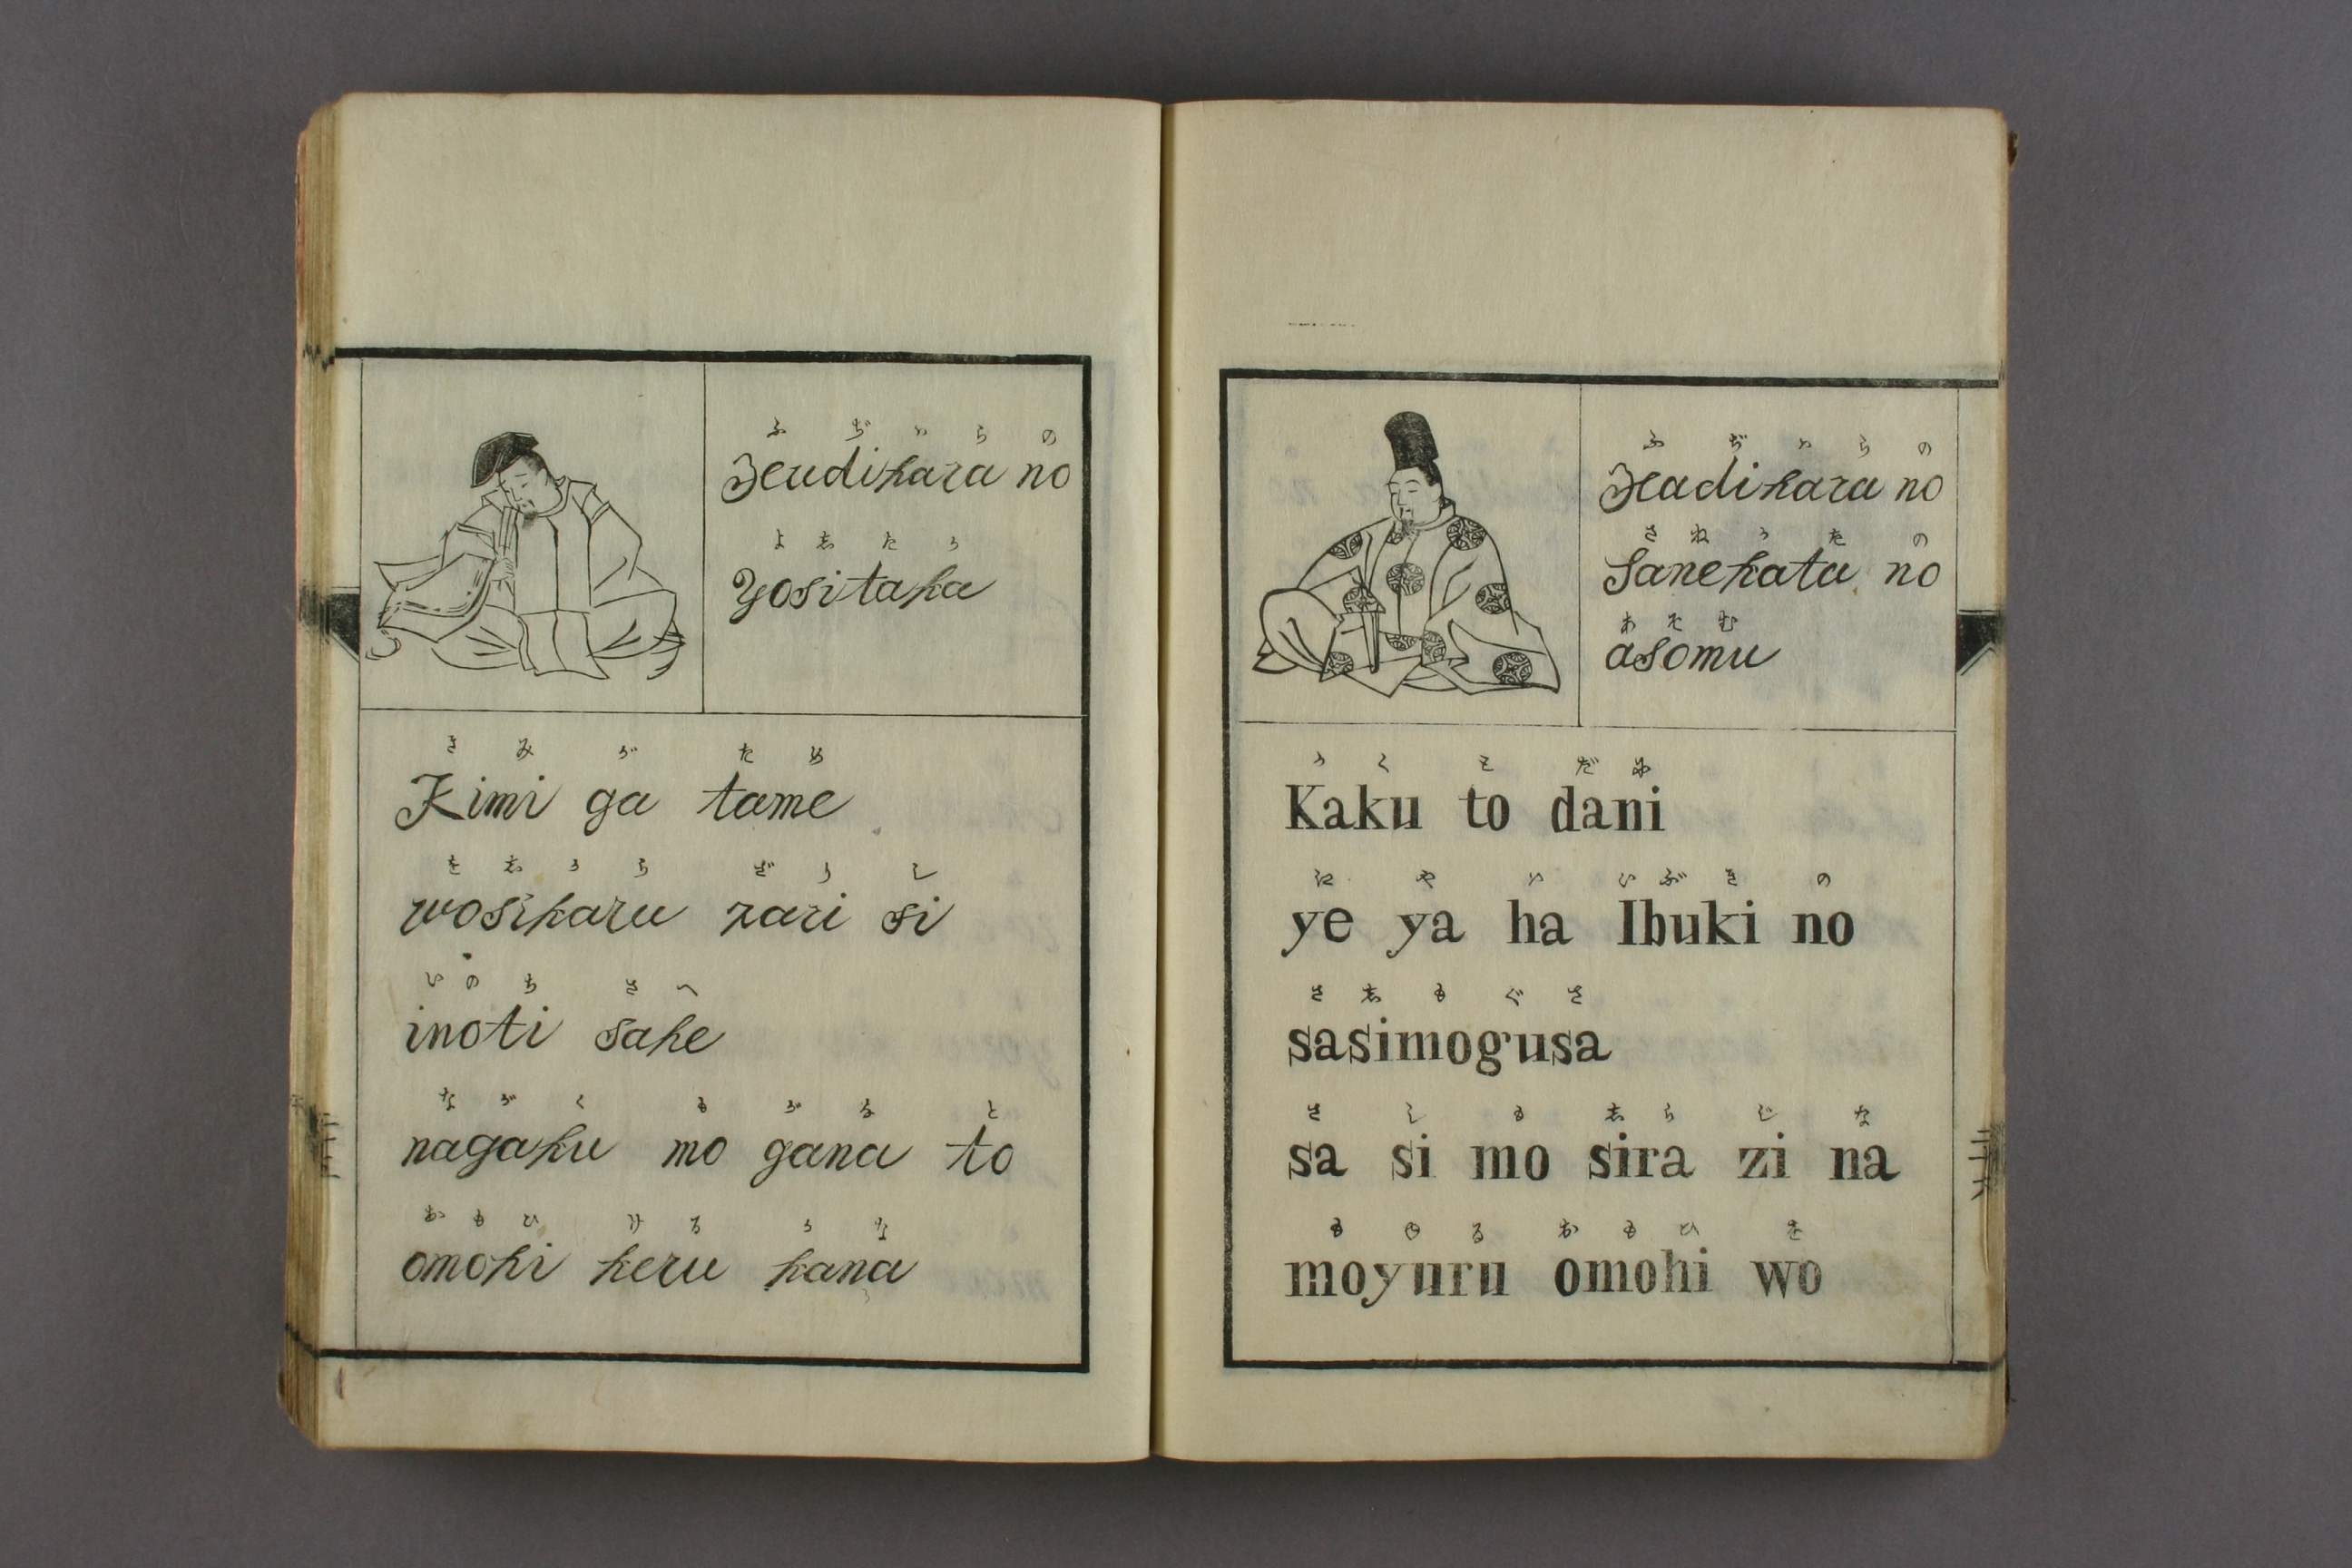 ふぢハらの
Hudihara no
よしたか
Yositaka
きみがため
Kimi ga tame
をしからざりし
wosikara zari si
いのちさへ
inoti sahe
ながくもがなと
nagaku mo gana to
おもひけるかな
omohi keru kana
ふぢハらの
Hudihara no
さねかたの
Sanekata no
あそむ
asomu
かくとだに
Kaku to dani
えやハいぶきの
ye ya ha Ibuki no
さしもぐさ
sasimogusa
さしもしらじな
sa si mo sira zi na
もゆるおもひを
moyuru omohi wo